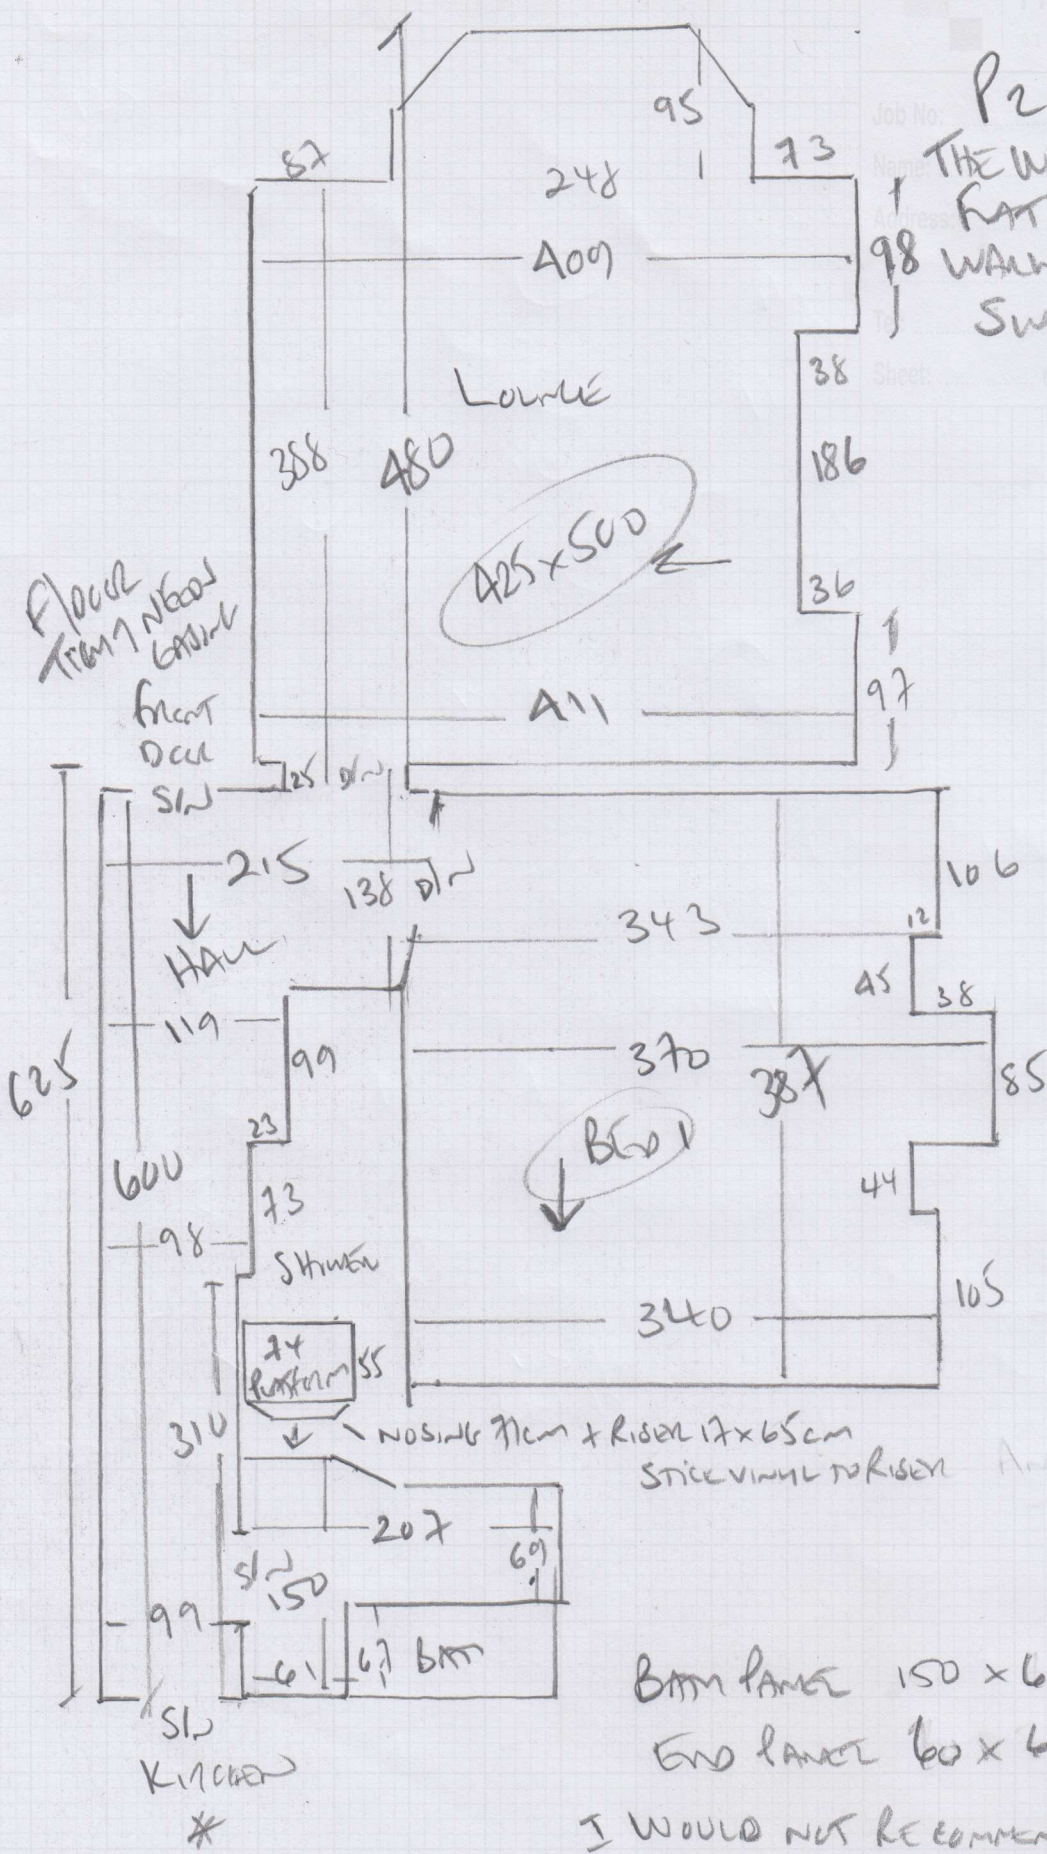 P2
Job No:
THE W
Name:
FLAT
Address:
WALK
SW
To
Sheet:
87
95
73
248
409
98
LOUNGE
38
388
480
186
425 x 500
36
FLOOR
NEEDS
EASING
FRONT
DOOR
411
97
S/N
25 D/N
215
138 D/N
106
343
12
HALL
45
38
119
99
370
387
85
625
23
BED 1
600
73
44
98
SHOWER
340
105
74
PLATFORM
55
310
NOSING 71cm + RISER 17 x 65cm
STICK VINYL TO RISER
207
69
S/N
150
99
61
67
BATH
S/N
KITCHEN
*
BATH PANEL 150 x 6
END PANEL 60 x 6
I WOULD NOT RECOMMEN